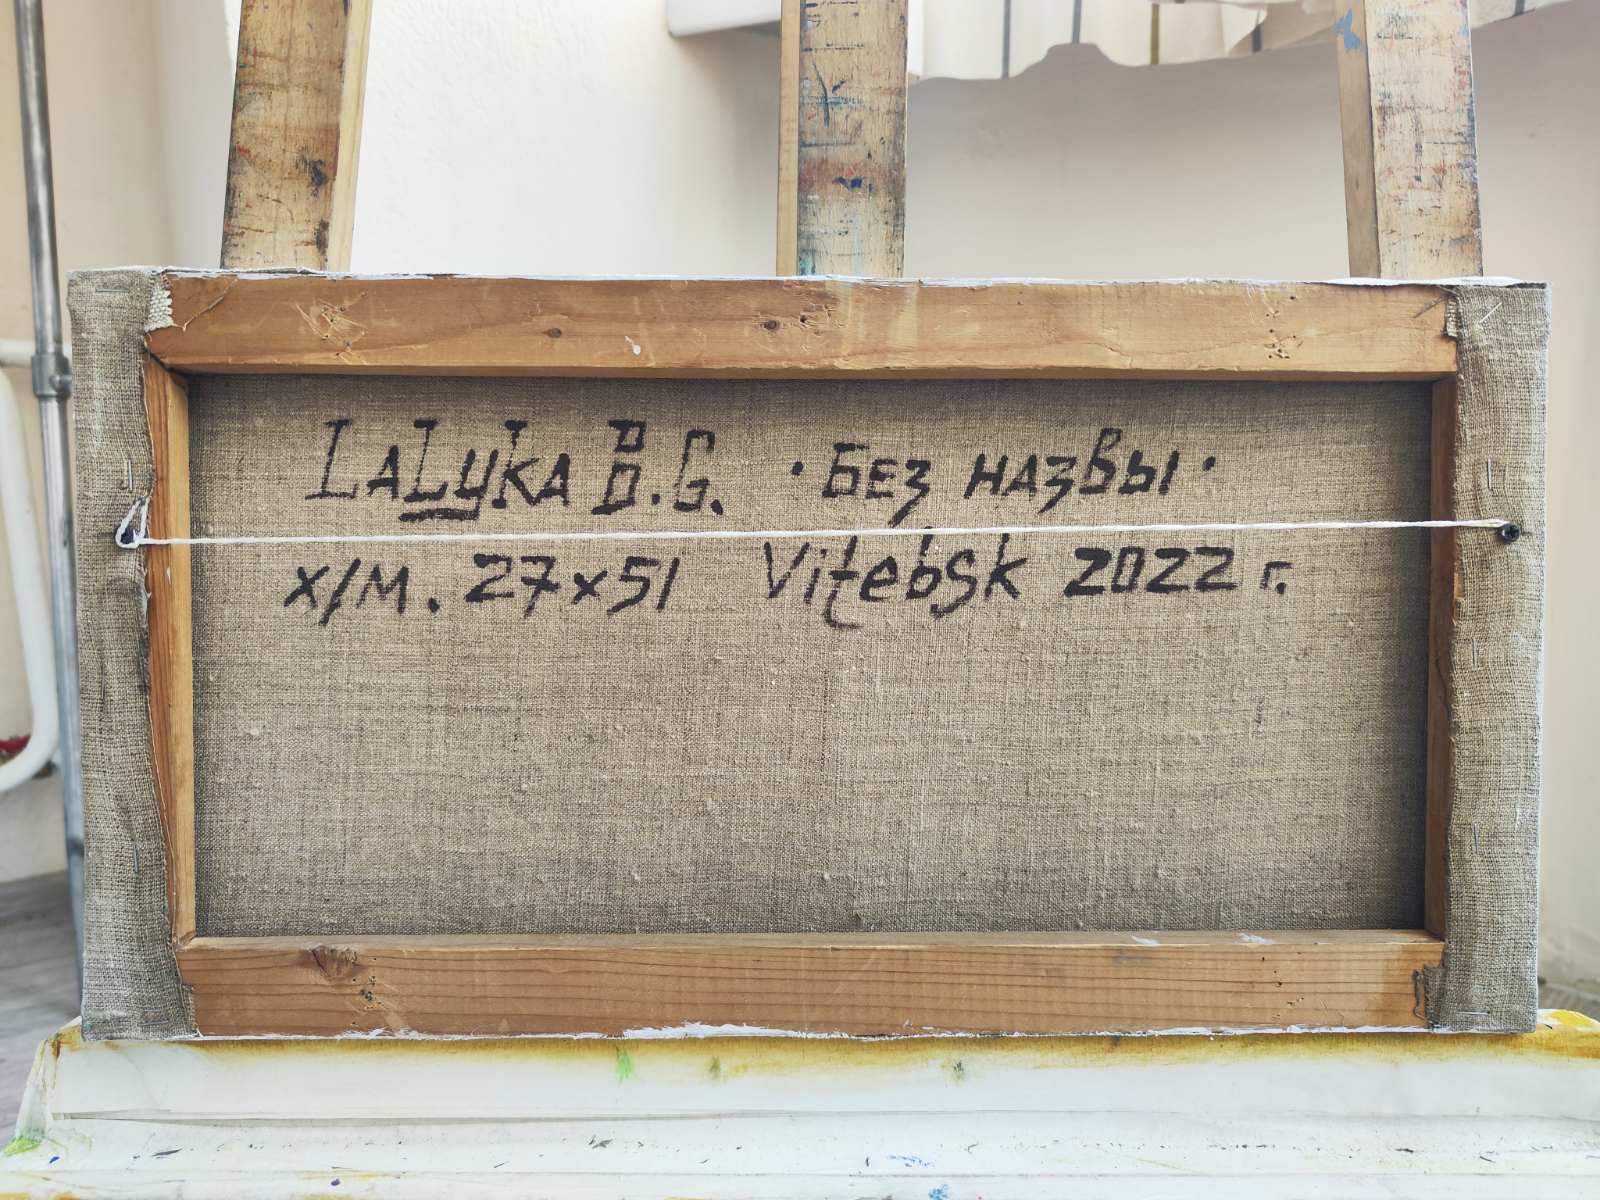 LALYKA B.G. · БЕЗ НАЗВЫ ·
х/м. 27х51 Vitebsk 2022 г.